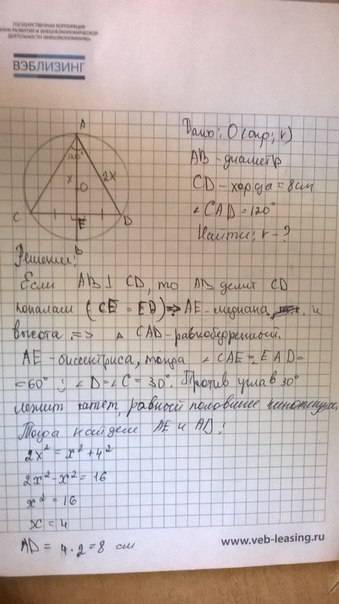 ГОСУДАРСТВЕННАЯ КОРПОРАЦИЯ
БАНК РАЗВИТИЯ И ВНЕШНЕЭКОНОМИЧЕСКОЙ
ДЕЯТЕЛЬНОСТИ (ВНЕШЭКОНОМБАНК)
ВЭБЛИЗИНГ
A
120°
x
2x
O
C
E
D
B
Дано: O (окр; r)
AB - диаметр
CD - хорда = 8 см
∠CAD = 120°
Найти: r - ?
Решение:
Если AB ⊥ CD, то AB делит CD
пополам (CE = ED) => AE - медиана, и
высота => △ CAD - равнобедренный.
AE - биссектриса, тогда ∠CAE = EAD =
= 60°; ∠D = ∠C = 30°. Против угла в 30°
лежит катет, равный половине гипотенузы.
Тогда найдем AE и AD:
2x² = x² + 4²
2x² - x² = 16
x² = 16
x = 4
AD = 4 · 2 = 8 см
www.veb-leasing.ru